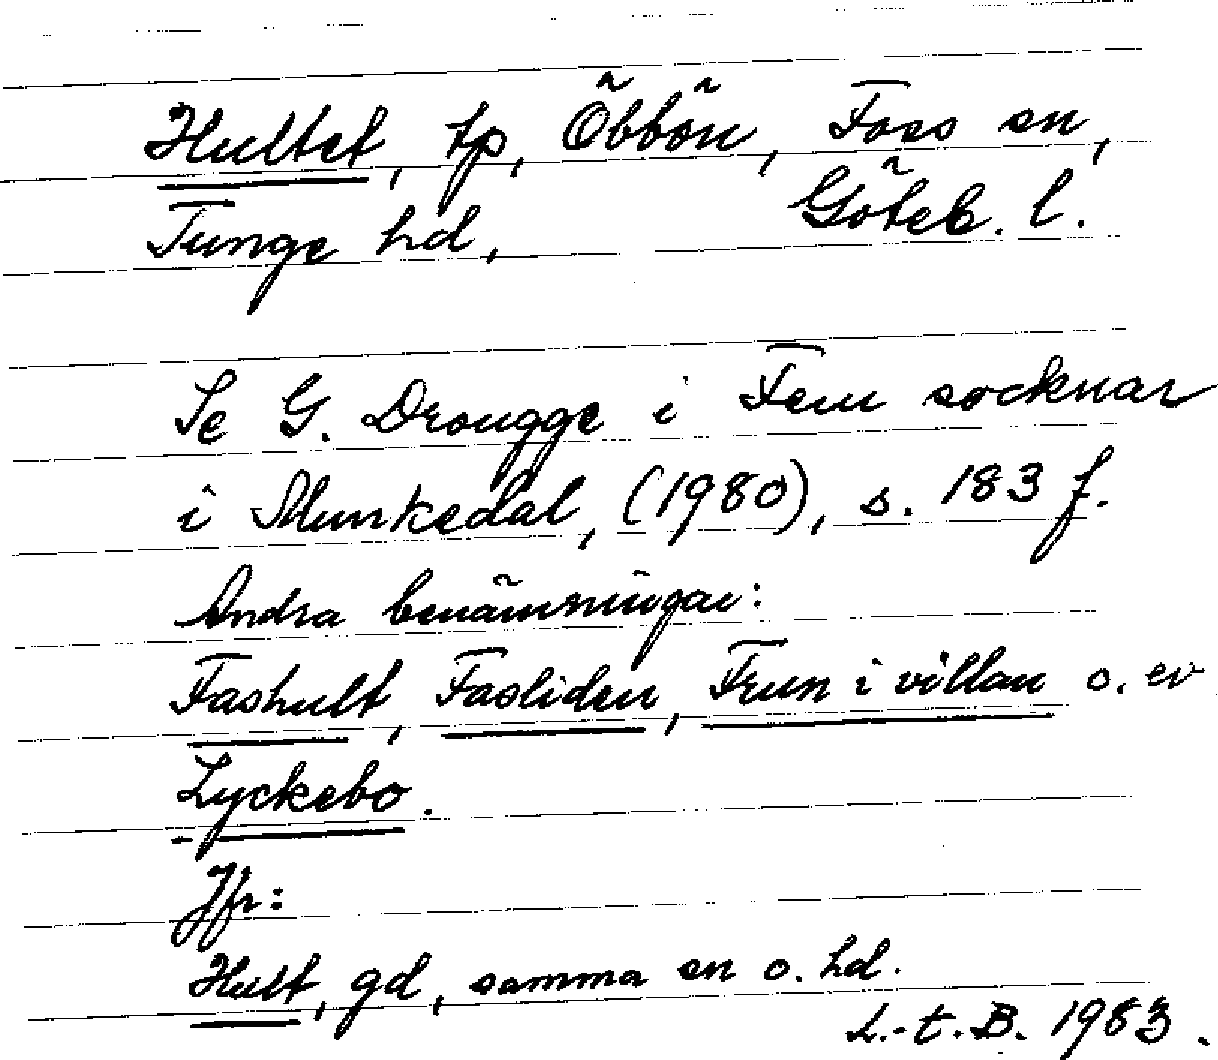 Hultet, tp, Öbbön, Foss sn,
Tunge hd, Göteb. l.
Se G. Drougge i Fem socknar
i Munkedal, (1980), s. 183 f.
Andra benämningar:
Fashult, Fasliden, Frun i villan o. ev
Lyckebo.
Jfr:
Hult, gd, samma sn o. hd.
L.-t. B. 1983.